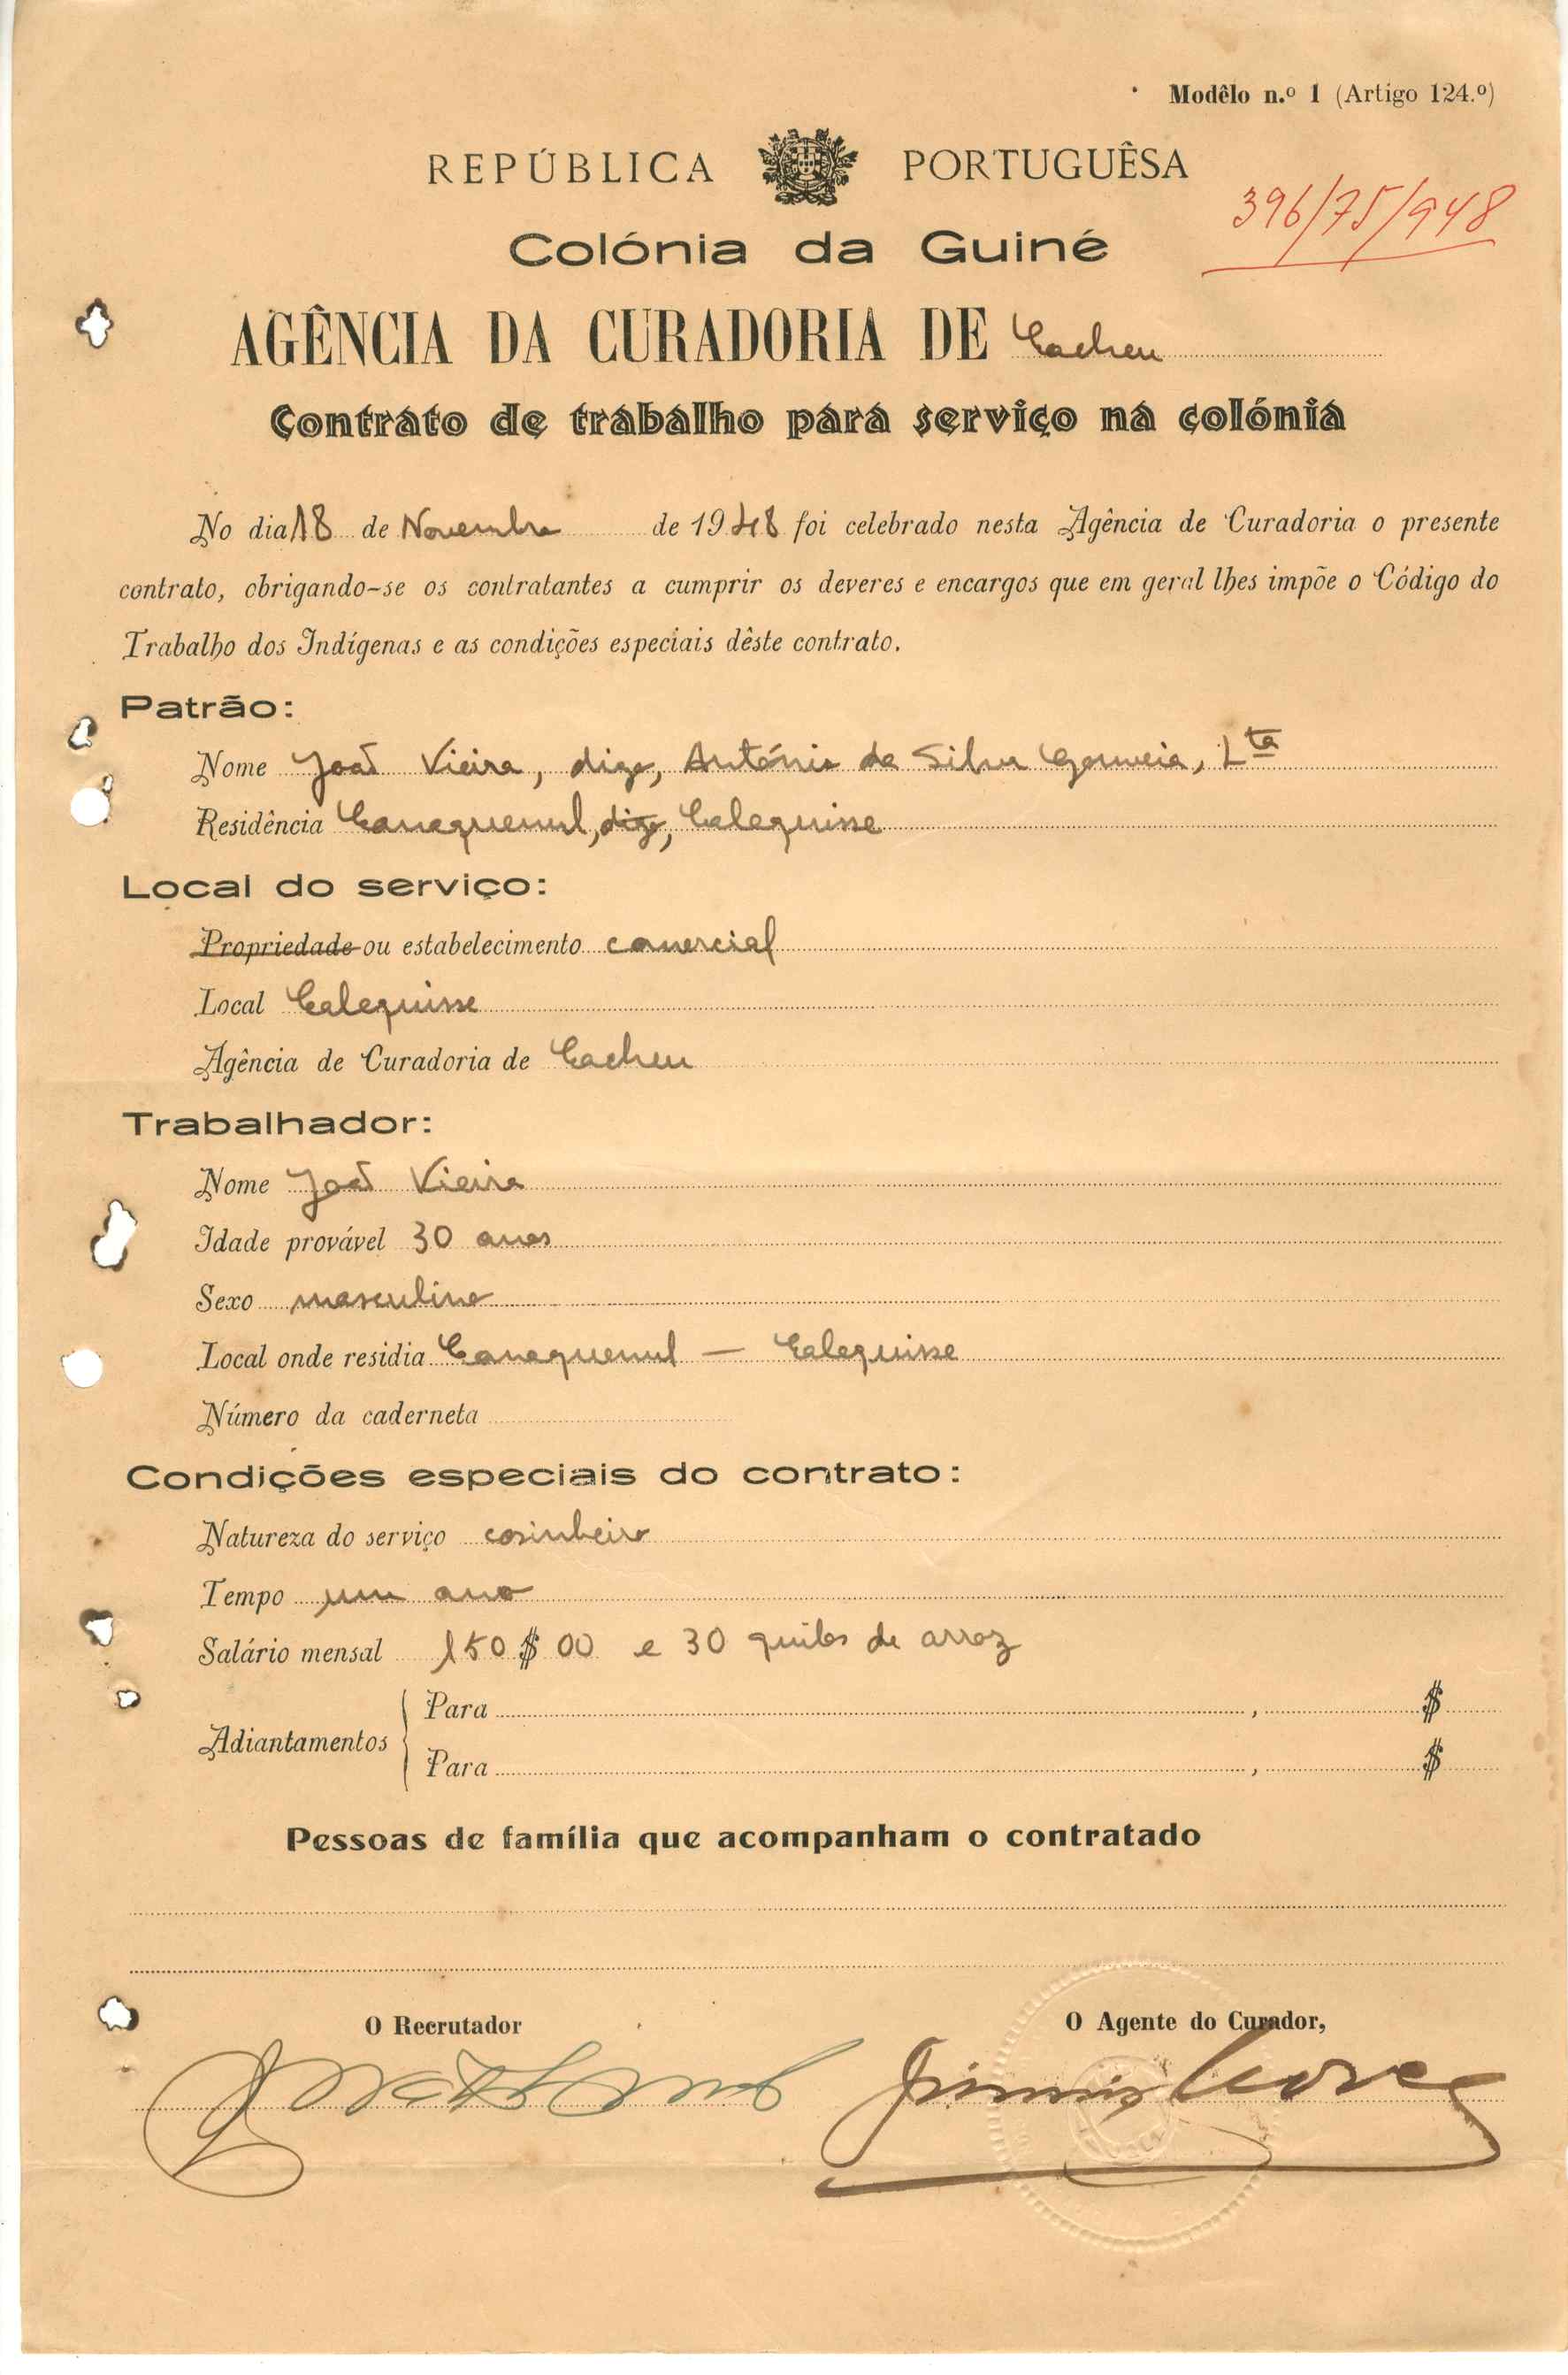 Modêlo n.º 1 (Artigo 124.º)
REPÚBLICA PORTUGUÊSA
396/75/948
Colónia da Guiné
AGÊNCIA DA CURADORIA DE Cacheu
Contrato de trabalho para serviço na colónia
No dia 18 de Novembro de 1948 foi celebrado nesta Agência de Curadoria o presente
contrato, obrigando-se os contratantes a cumprir os deveres e encargos que em geral lhes impõe o Código do
Trabalho dos Indígenas e as condições especiais dêste contrato.
Patrão:
Nome João Vieira, digo, António da Silva Gouveia, Lta
Residência Canaquenul, digo, Calequisse
Local do serviço:
Propriedade ou estabelecimento comercial
Local Calequisse
Agência de Curadoria de Cacheu
Trabalhador:
Nome João Vieira
Idade provável 30 anos
Sexo masculino
Local onde residia Canaquenul — Calequisse
Número da caderneta
Condições especiais do contrato:
Natureza do serviço cosinheiro
Tempo um ano
Salário mensal 150$00 e 30 quilos de arroz
Adiantamentos
Para , $
Para , $
Pessoas de família que acompanham o contratado
O Recrutador
O Agente do Curador,